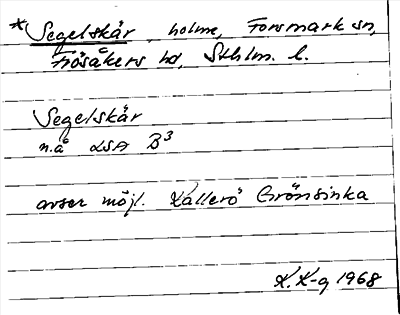 *Segelskär, holme, Forsmark sn,
Frösåkers hd, Sthlm. l.
Segelskär
n.å LSA B³
avser möjl. Källerö Grönsinka
K. K-g 1968